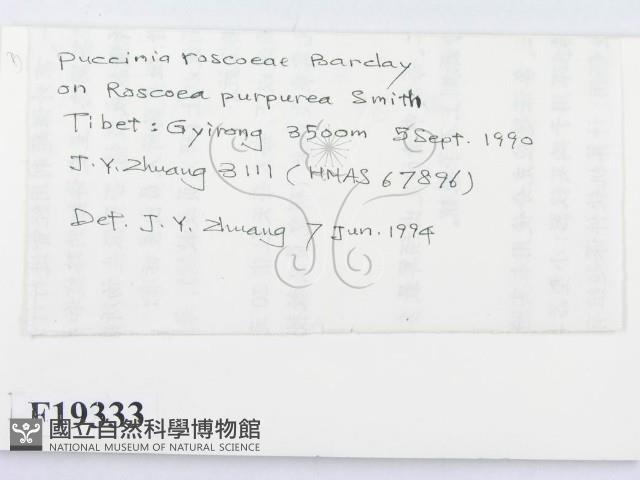 Puccinia roscoeae Barclay
on Roscoea purpurea Smith
Tibet: Gyirong 3500m 5 Sept. 1990
J.Y. Zhuang 3111 (HMAS 67896)
Det. J.Y. Zhuang 7 Jun. 1994
F19333
國立自然科學博物館
NATIONAL MUSEUM OF NATURAL SCIENCE